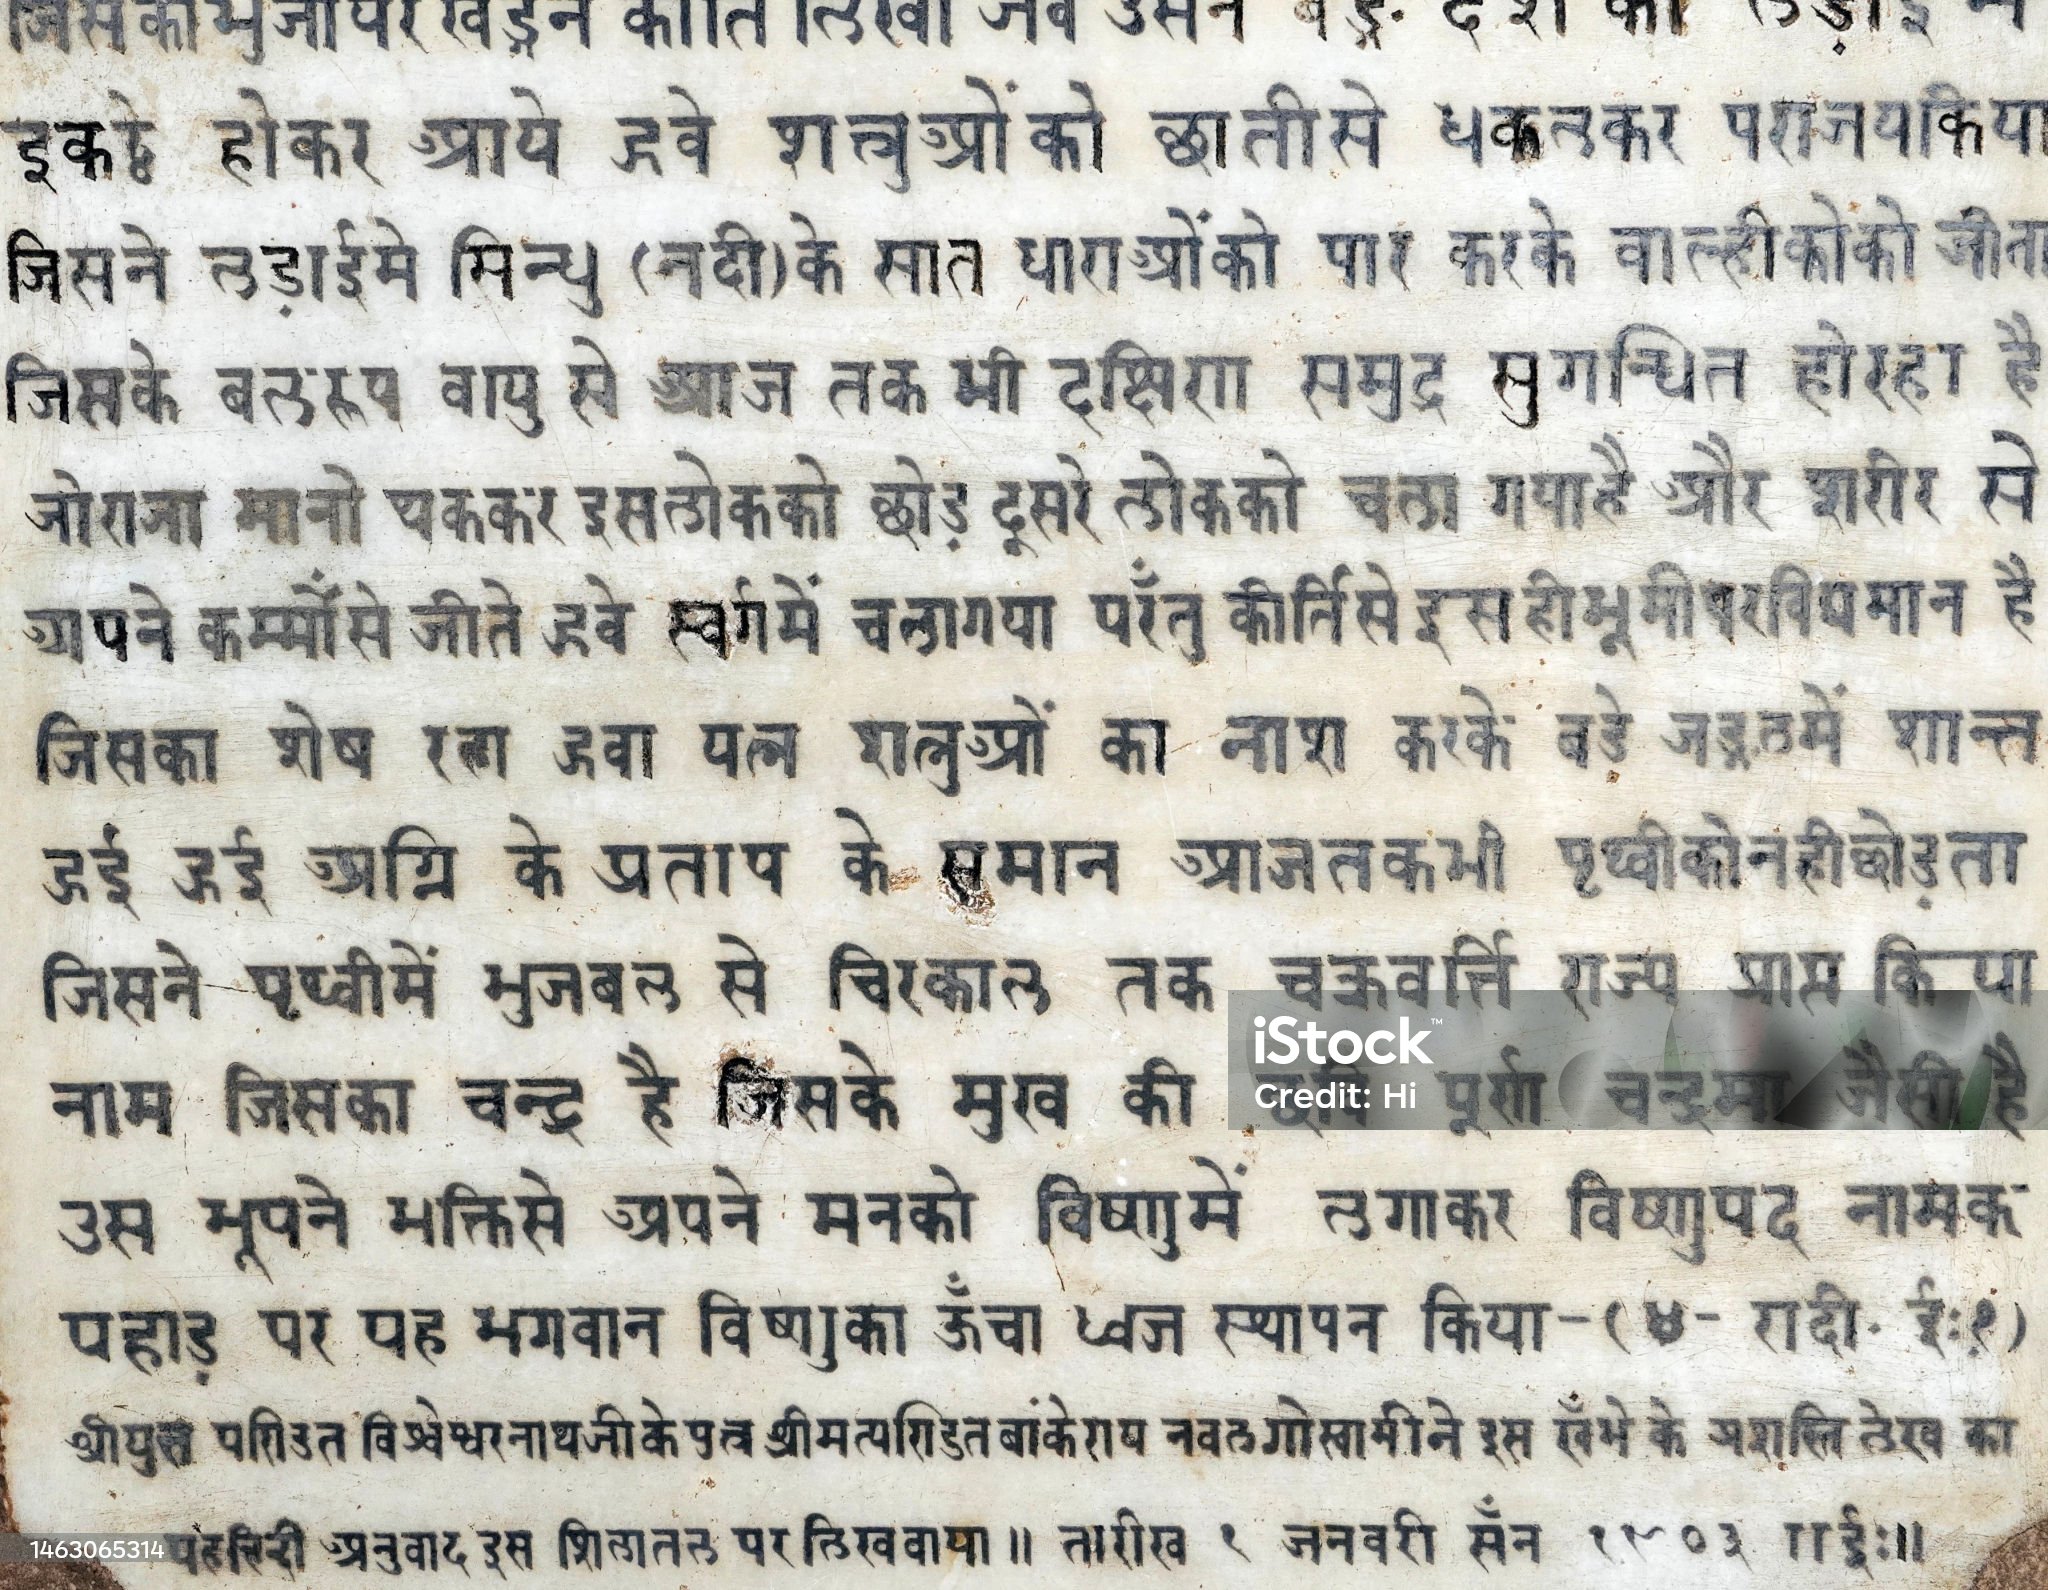 जिसकी भुजापर खड्गने कीर्ति लिखी जब उसने बङ्ग देश की लड़ाई में
इकठ्ठे होकर आये हुवे शत्त्रुओंको छातीसे धकेलकर पराजयकिया
जिसने लड़ाईमे सिन्धु (नदी)के सात धाराओंको पार करके वाल्हीकोंको जीता
जिसके बलरूप वायु से आज तक भी दक्षिण समुद्र सुगन्धित होरहा है
जोराजा मानो थककर इसलोकको छोड़ दूसरे लोकको चला गयाहै और शरीर से
अपने कर्म्मोंसे जीते हुवे स्वर्गमें चलागया परँतु कीर्तिसे इसहीभूमीपरविद्यमान है
जिसका शेष रहा हुवा यत्न शत्रुओं का नाश करके बडे जङ्गलमें शान्त
हुई हुई अग्नि के प्रताप के समान आजतकभी पृथ्वीकोनहीछोड़ता
जिसने पृथ्वीमें भुजबल से चिरकाल तक चक्रवर्त्ति राज्य प्राप्त किया
नाम जिसका चन्द्र है जिसके मुख की द्युति पूर्ण चन्द्रमा जैसी है
iStock™
Credit: Hi
उस भूपने भक्तिसे अपने मनको विष्णुमें लगाकर विष्णुपद नामक
पहाड़ पर यह भगवान विष्णुका ऊँचा ध्वज स्थापन किया-(४- रादी. ई:१)
श्रीयुत पण्डित विश्वेश्वरनाथजीके पुत्त्र श्रीमत्पण्डित बांकेराय नवलगोस्वामीने इस खँभे के प्रशस्ति लेख का
यहहिन्दी अनुवाद इस शिलातल पर लिखवाया॥ तारीख १ जनवरी सँन १९०३ ई:॥
1463065314